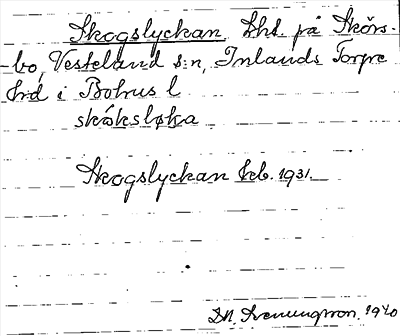 Skogslyckan, Lht. på Skörs-
bo, Västerland s:n, Inlands Torpe
hrd i Bohus l
skåksløka
Skogslyckan hrb. 1931.
1940